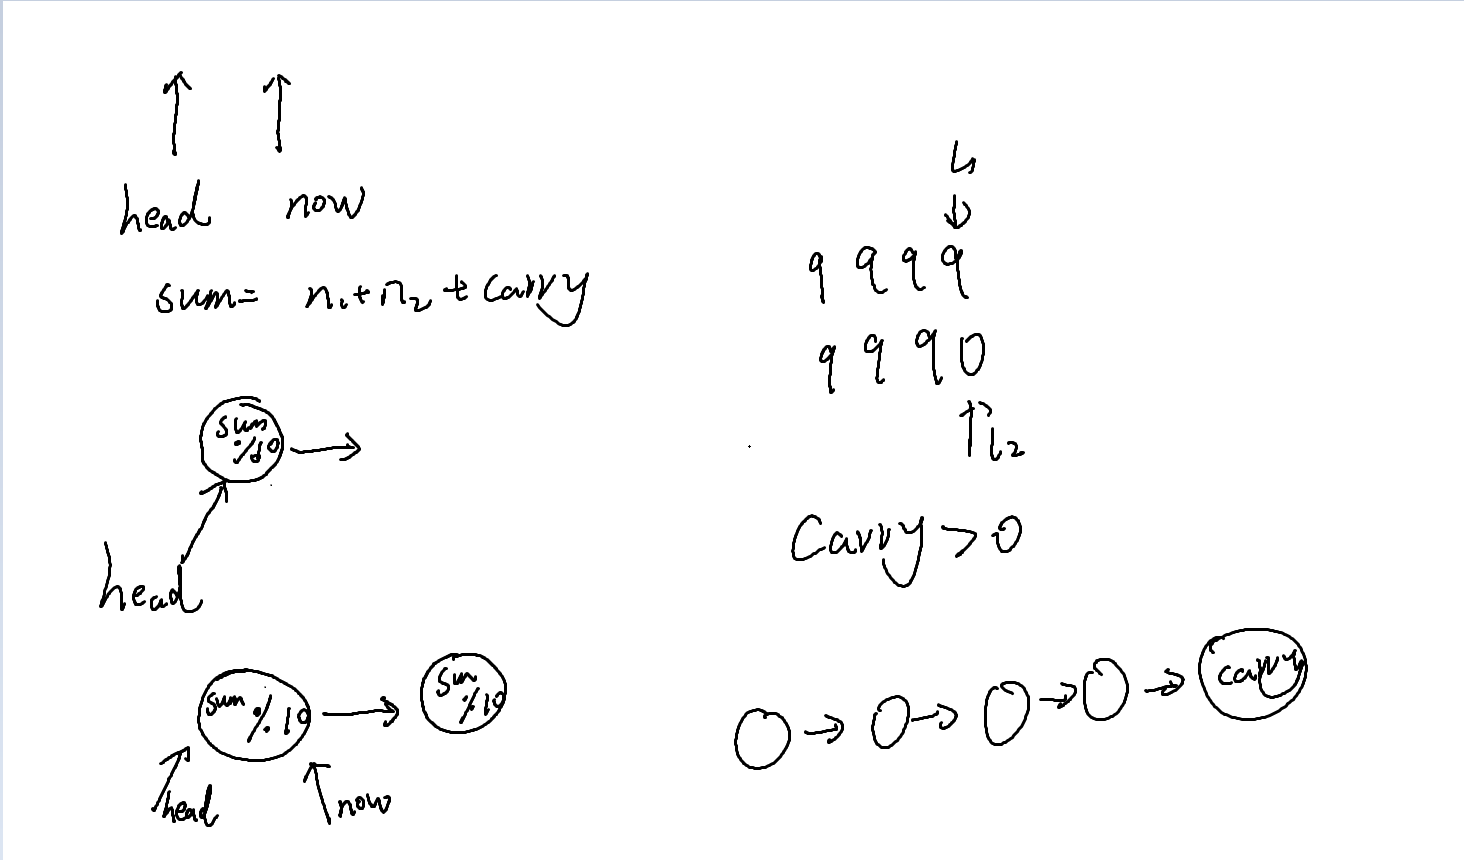 head now
sum= n1+n2+carry
sum
%10
head
sum %10
sum
%10
head
now
l1
9 9 9 9
9 9 9 0
l2
Carry>0
carry